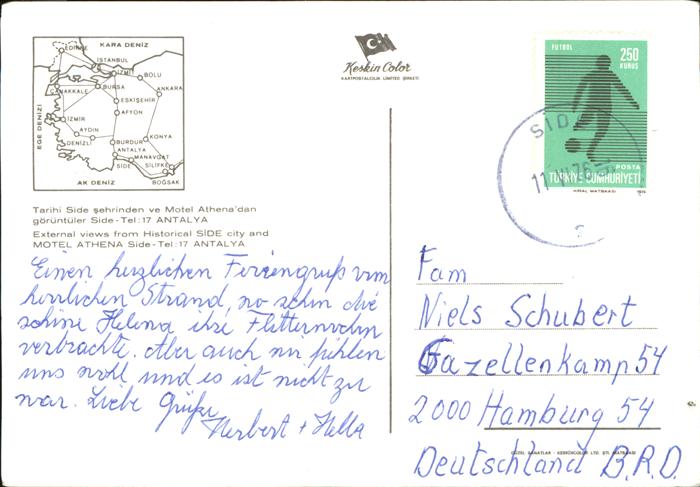 KARA DENİZ
EDİRNE
İSTANBUL
İZMİT
BOLU
ÇANAKKALE
BURSA
ANKARA
ESKİŞEHİR
AFYON
EGE DENİZİ
İZMİR
AYDIN
KONYA
DENİZLİ
BURDUR
ANTALYA
MANAVGAT
SİDE
SİLİFKE
AK DENİZ
BOĞSAK
Tarihi Side şehrinden ve Motel Athena'dan
görüntüler Side-Tel:17 ANTALYA
External views from Historical SİDE city and
MOTEL ATHENA Side-Tel:17 ANTALYA
Keskin Color
KARTPOSTALCILIK LİMİTED ŞİRKETİ
FUTBOL
250
KURUŞ
POSTA
TÜRKİYE CUMHURİYETİ
SİDE
11 76
Einen herzlichen Feriengruß vom
herrlichen Strand, wo schon die
schöne Helena ihre Flitterwochen
verbrachte. Aber auch wir fühlen
uns wohl und es ist nicht zu
war. Liebe Grüße
Herbert + Hella
Fam
Niels Schubert
Gazellenkamp 54
2000 Hamburg 54
Deutschland B.R.D.
GÜZEL SANATLAR - KESKİNCOLOR LTD. ŞTİ. MATBAASI